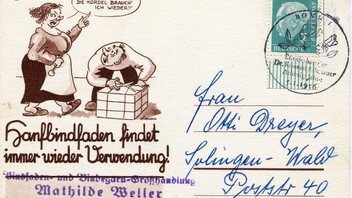 DIE KORDEL BRAUCH'
ICH WIEDER!"
Hanfbindfaden findet
immer wieder Verwendung!
Bindfaden- und Bindegarn-Großhandlung
Mathilde Weller
Frau
Otti Dreyer,
Solingen-Wald
Poststr 40